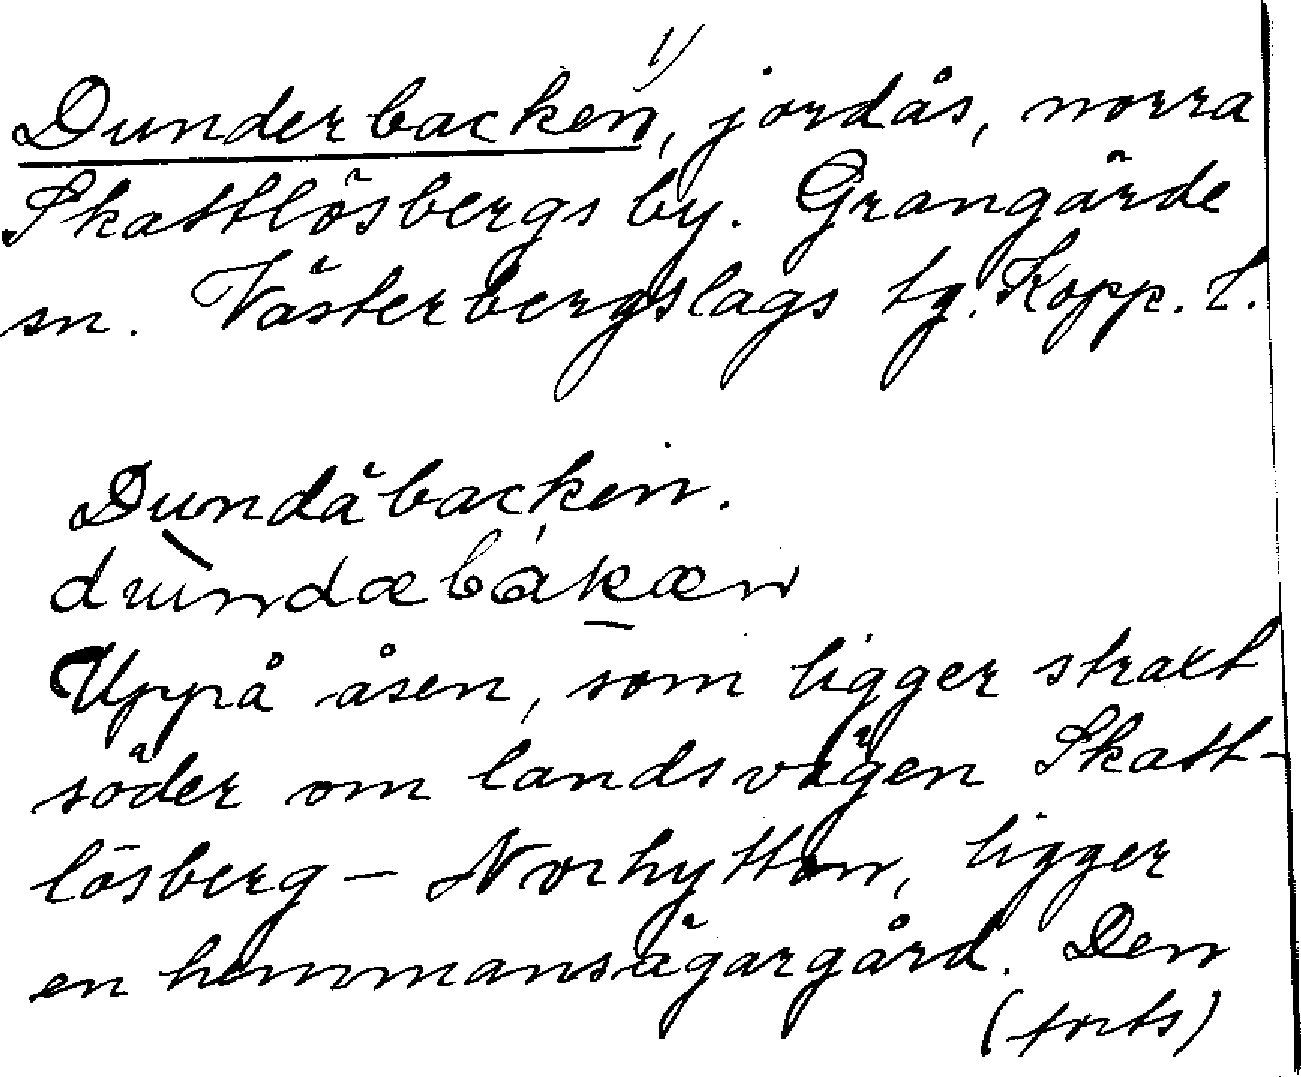 Dunderbacken¹⁾, jordås, norra
Skattlösbergs by. Grangärde
sn. Västerbergslags tg. Kopp. l.
Dundäbacken.
dùndæbákæn
Uppå åsen, som ligger straxt
söder om landsvägen Skatt-
lösberg – Norhyttan, ligger
en hemmansägargård. Den
(forts)